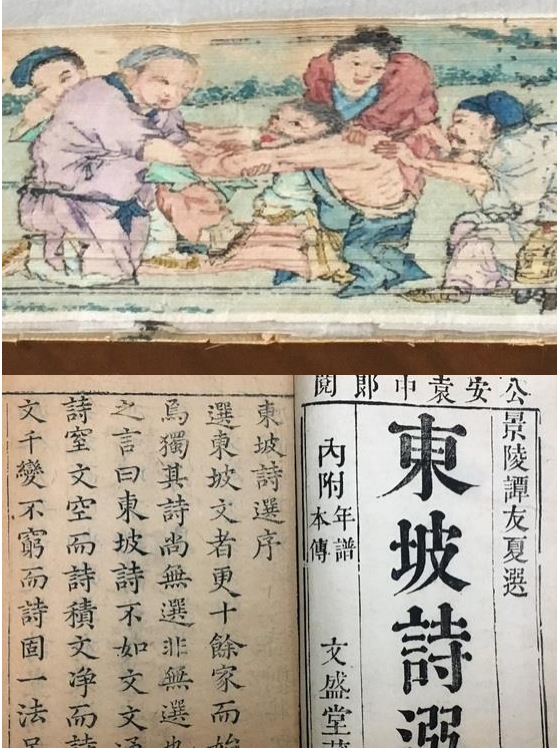 公安袁中郎閱
景陵譚友夏選
東坡詩選
內附年譜
本傳
文盛堂藏
東坡詩選序
選東坡文者更十餘家而始
焉獨其詩尚無選非無選也
之言曰東坡詩不如文文通
詩窒文空而詩積文净而詩
文千變不窮而詩固一法足